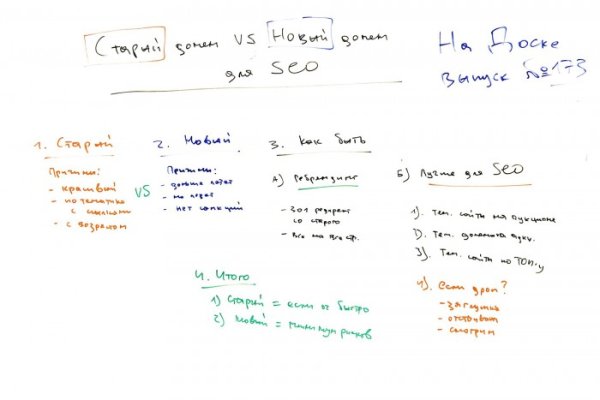 Старый домен VS Новый домен
для SEO
На Доске
выпуск №173
1. Старый
Причины:
- красивый
- по тематике
с ссылками
- с возрастом
VS
2. Новый
Причины:
- дольше
- не
- нет санкций
3. Как быть
А) Ребрендинг
- 301 редирект
со старого
- Все на Все стр.
Б) Лучше для SEO
1). Тем. сайты на аукционе
2). Тем. домена аукц.
3). Тем. сайты по ТОП-у
4). если дроп?
- заглушка
- отстаивать
- смотрим
4. Итого
1) Старый = если оч быстро
2) Новый = минимум рисков